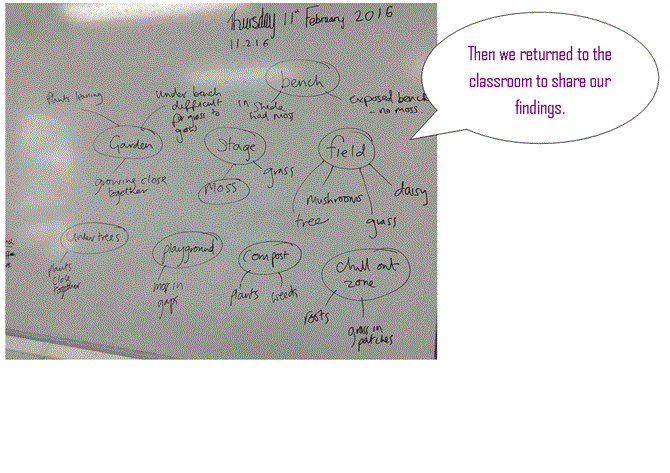 Thursday 11th February 2016
11.2.16
Then we returned to the
classroom to share our
findings.
bench
in shade
had moss
exposed bench
- no moss
Plants
Under bench
difficult
for grass to
grow
Garden
growing close
together
Stage
Moss
grass
field
tree
Mushrooms
grass
daisy
Under trees
plants
close
together
playground
in
gaps
compost
plants
weeds
chill out
zone
roots
grass in
patches